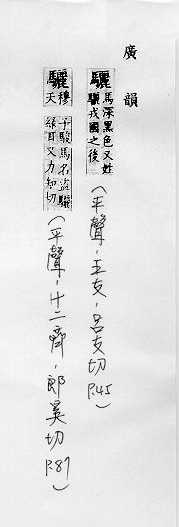 廣韻
驪 馬深黑色又姓
驪戎國之後
(平聲·五支·呂支切 P.45)
驪 穆天
子駿馬名盜驪
綠耳又力知切
(平聲·十二齊·郎奚切 P.87)